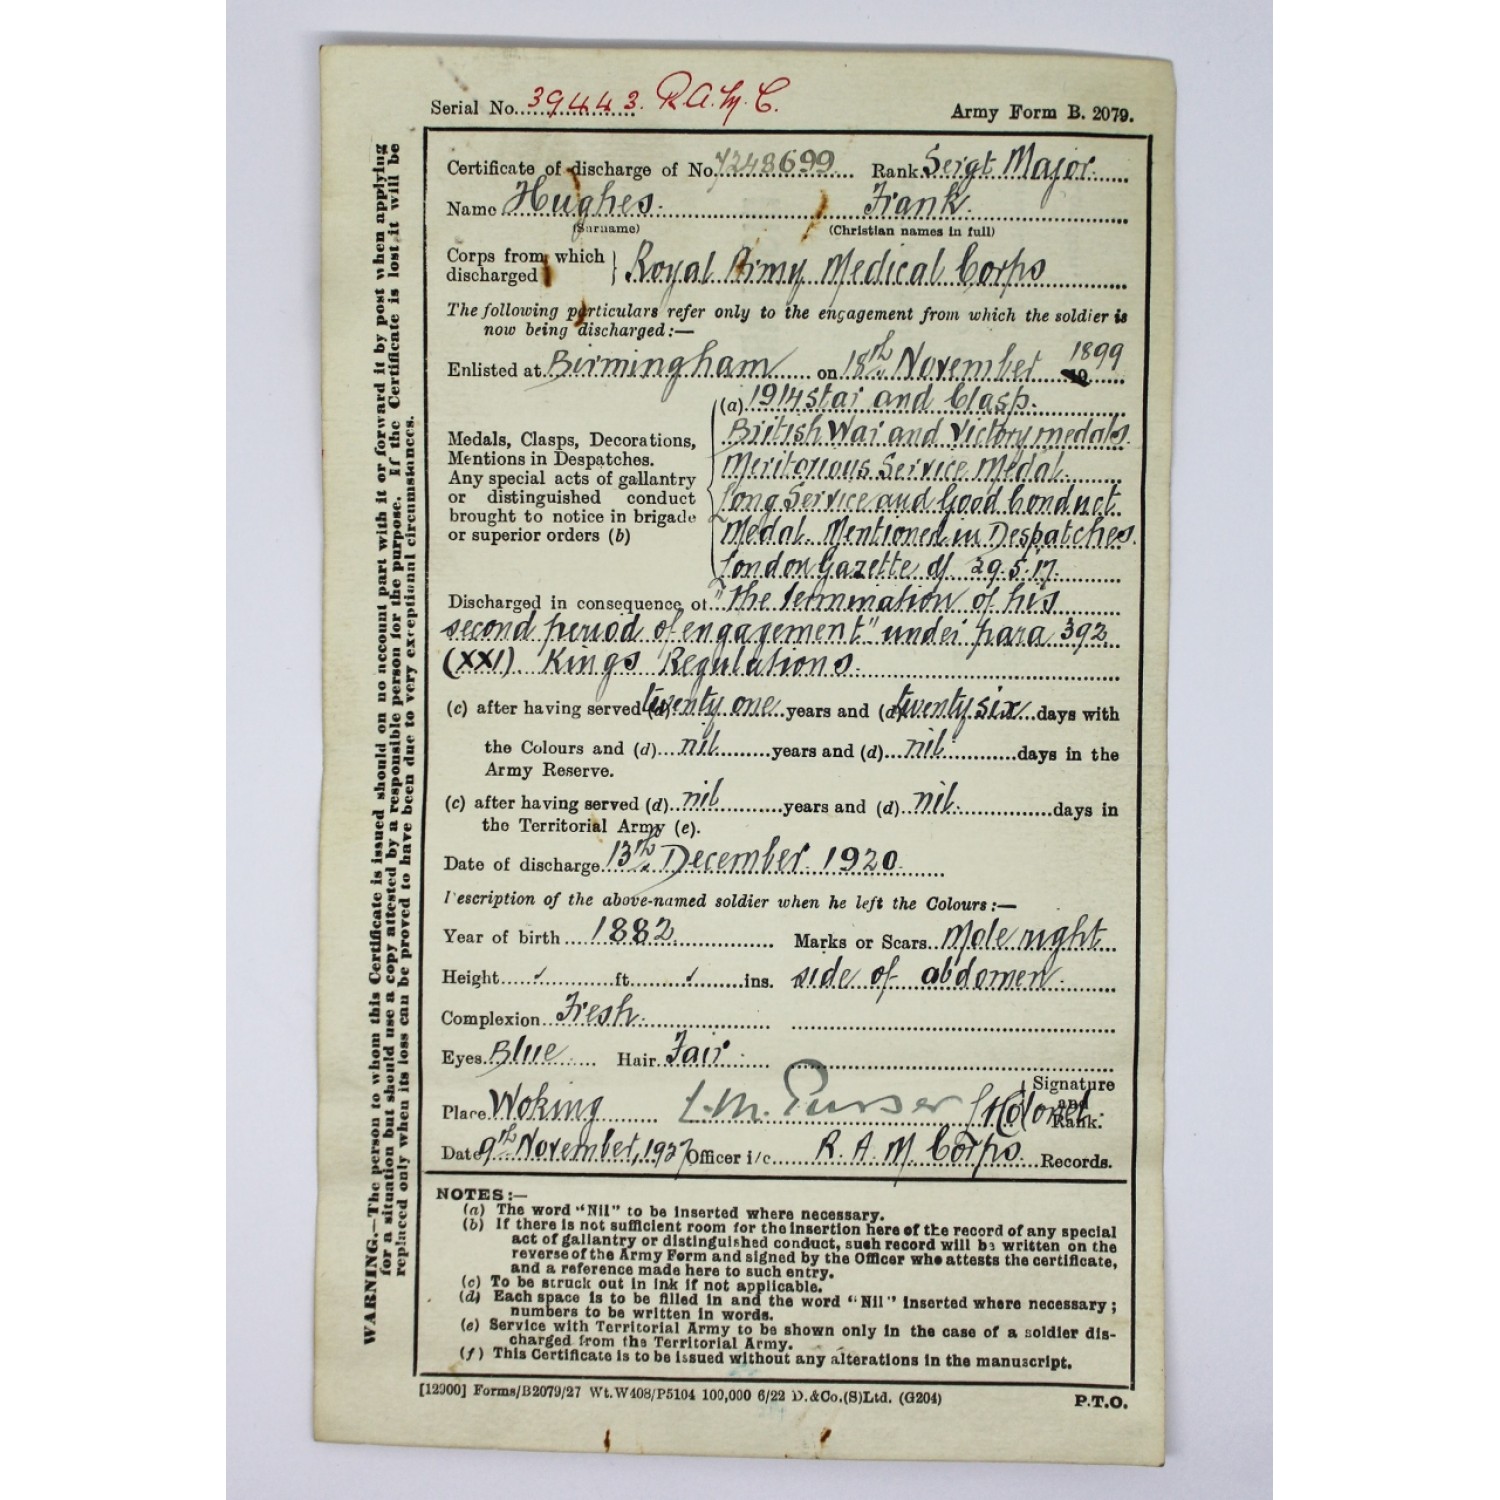 Serial No. 39443. R.A.M.C. Army Form B. 2079.
Certificate of discharge of No. 7248699 Rank Sergt Major.
Name Hughes. Frank.
(Surname) (Christian names in full)
Corps from which discharged } Royal Army Medical Corps
The following particulars refer only to the engagement from which the soldier is
now being discharged:—
Enlisted at Birmingham on 18th November 1899
(a) 1914 Star and Clasp.
British War and Victory medals.
Medals, Clasps, Decorations,
Mentions in Despatches.
Any special acts of gallantry
or distinguished conduct
brought to notice in brigade
or superior orders (b)
Meritorious Service Medal.
Long Service and Good Conduct
Medal. Mentioned in Despatches.
London Gazette d/ 29.5.17.
Discharged in consequence of "the termination of his
second period of engagement" under para 392
(XXI). Kings Regulations.
(c) after having served (d) twenty one years and (d) twenty six days with
the Colours and (d) nil years and (d) nil days in the
Army Reserve.
(c) after having served (d) nil years and (d) nil. days in
the Territorial Army (e).
Date of discharge 13th December. 1920.
Description of the above-named soldier when he left the Colours:—
Year of birth 1882. Marks or Scars Mole right
Height ft. ins. side of abdomen.
Complexion Fresh.
Eyes Blue. Hair Fair.
Signature
and
Rank.
Place Woking L.M. Purser Colonel.
Date 9th November, 1937 Officer i/c R. A. M Corps. Records.
NOTES:—
(a) The word "Nil" to be inserted where necessary.
(b) If there is not sufficient room for the insertion here of the record of any special
act of gallantry or distinguished conduct, such record will be written on the
reverse of the Army Form and signed by the Officer who attests the certificate,
and a reference made here to such entry.
(c) To be struck out in ink if not applicable.
(d) Each space is to be filled in and the word "Nil" inserted where necessary;
numbers to be written in words.
(e) Service with Territorial Army to be shown only in the case of a soldier dis-
charged from the Territorial Army.
(f) This Certificate is to be issued without any alterations in the manuscript.
[12900] Forms/B2079/27 Wt.W408/P5104 100,000 6/22 D.&Co.(S)Ltd. (G204)
P.T.O.
WARNING.—The person to whom this Certificate is issued should on no account part with it or forward it by post when applying
for a situation but should use a copy attested by a responsible person for the purpose. If the Certificate is lost it will be
replaced only when its loss can be proved to have been due to very exceptional circumstances.